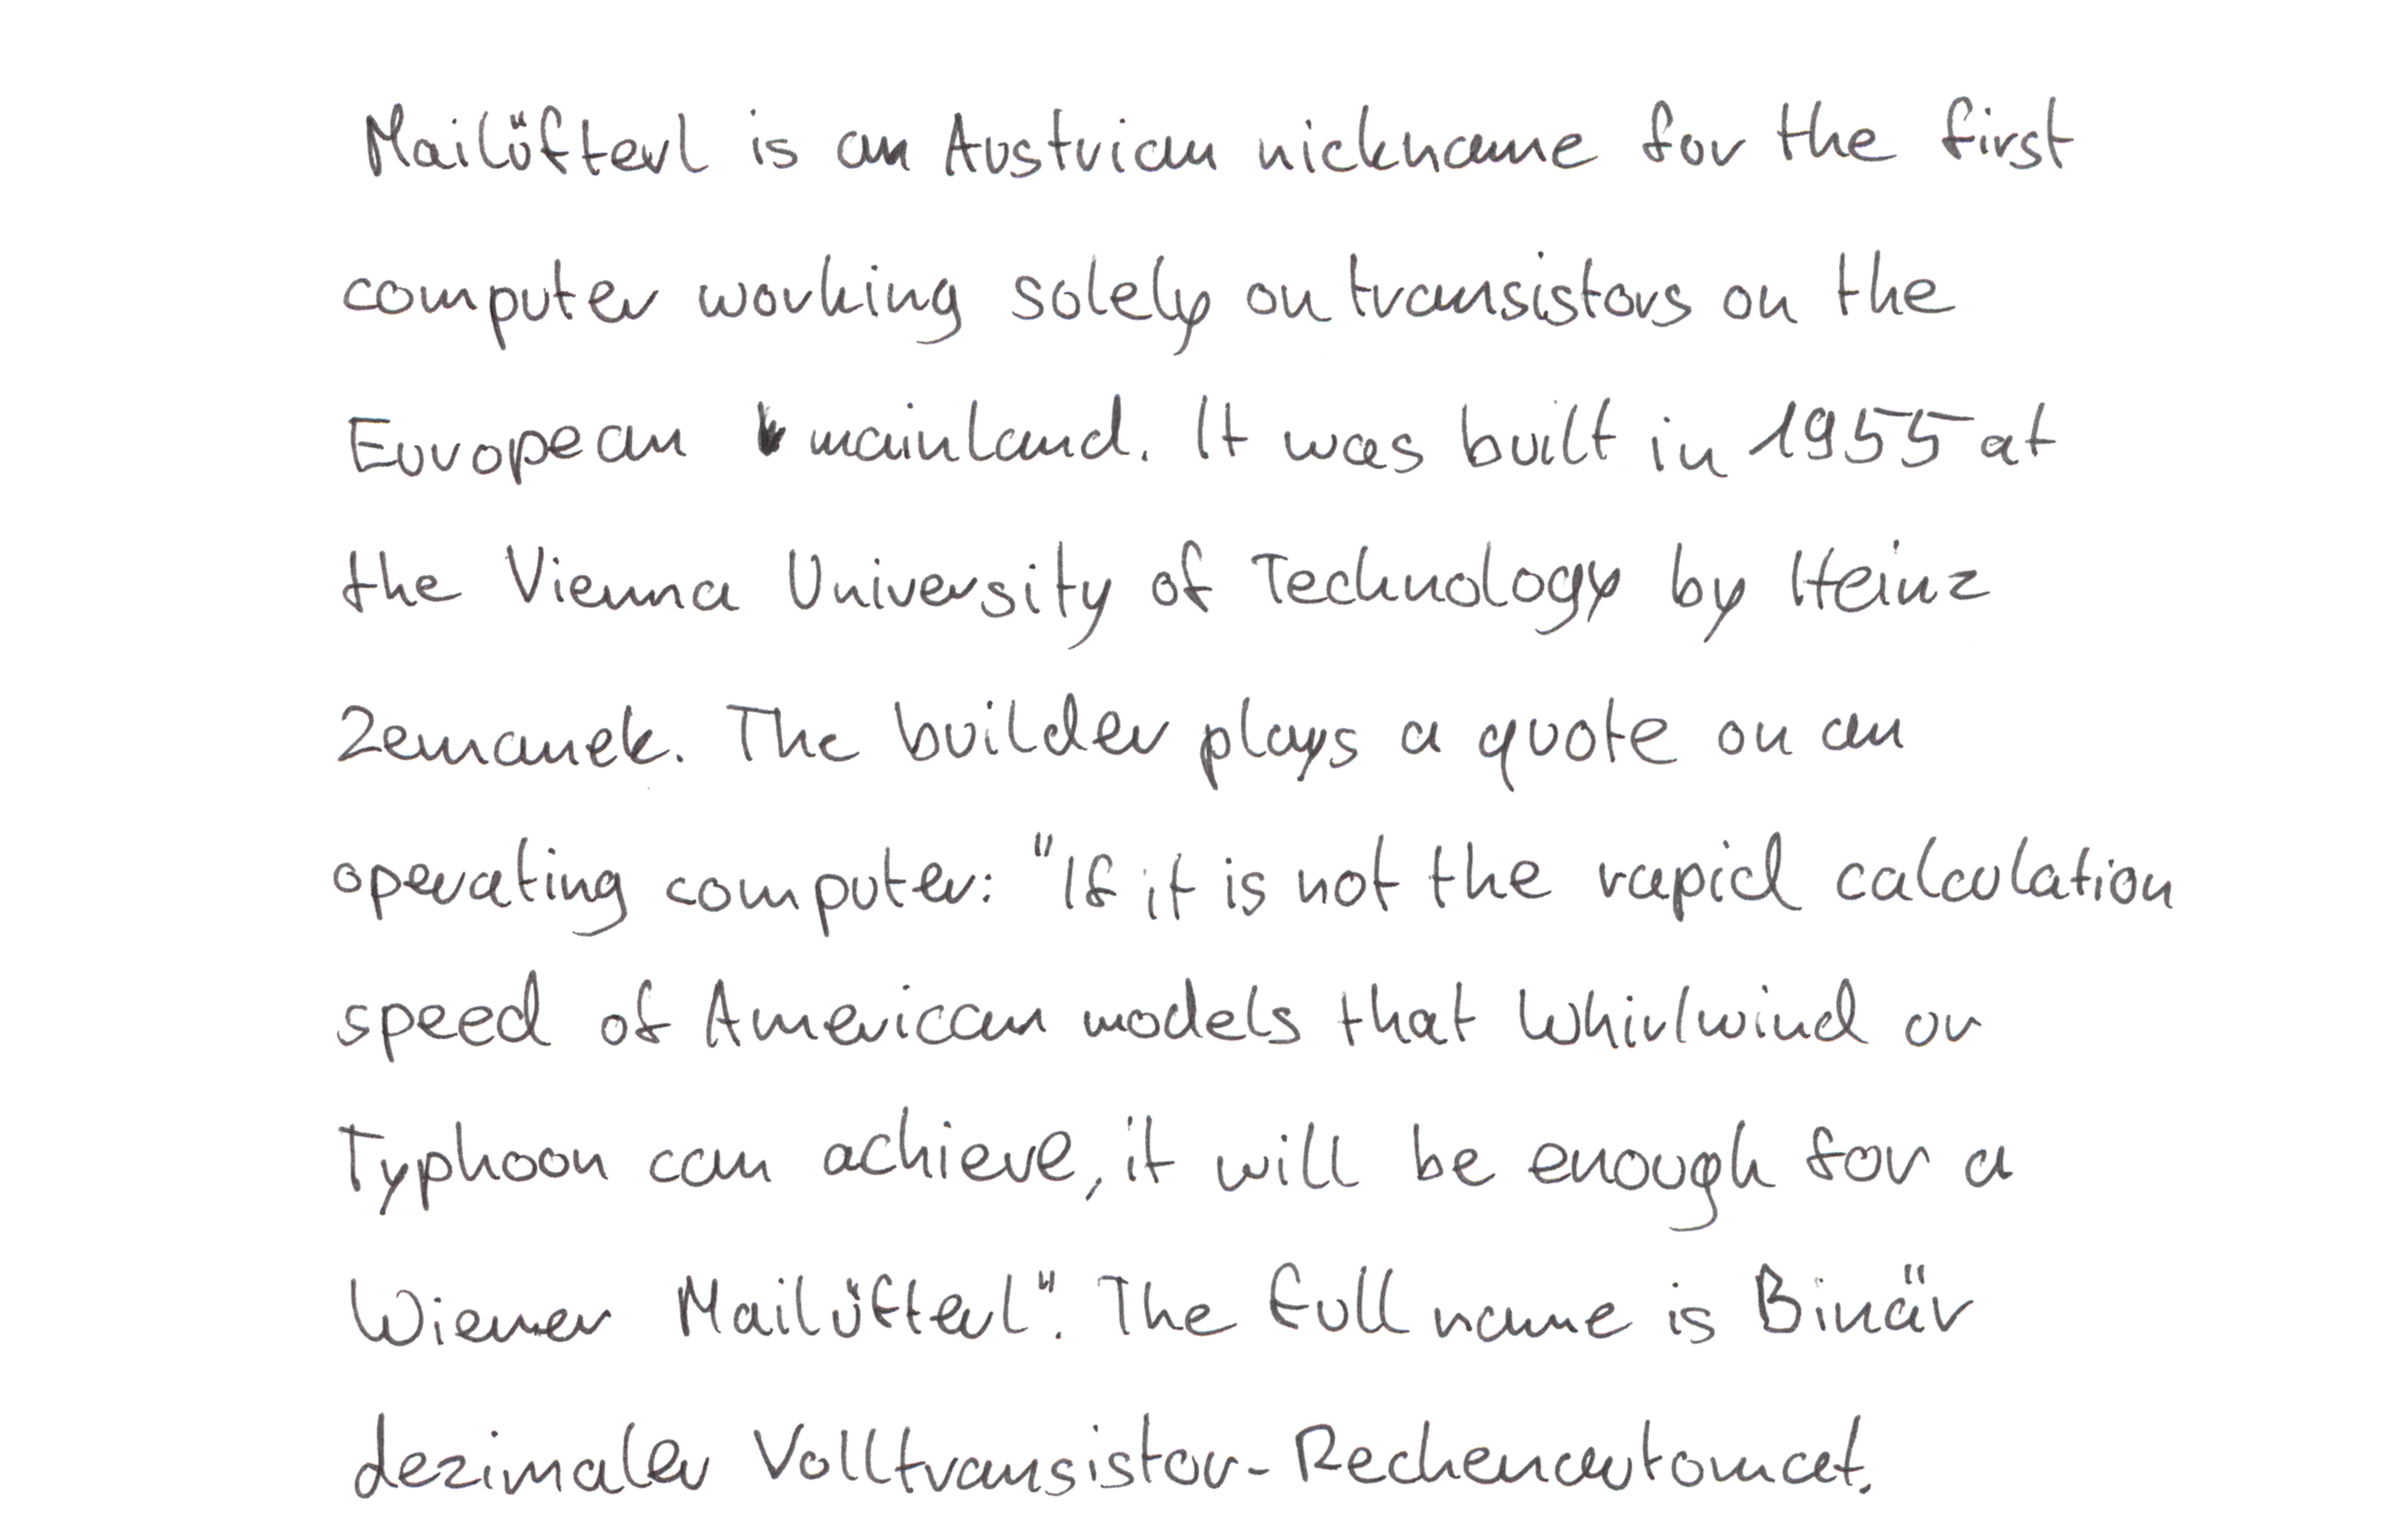 Mailüfterl is an Austrian nickname for the first
computer working solely on transistors on the
European mainland. It was built in 1955 at
the Vienna University of Technology by Heinz
Zemanek. The builder plays a quote on an
operating computer: "If it is not the rapid calculation
speed of American models that Whirlwind or
Typhoon can achieve, it will be enough for a
Wiener Mailüfterl". The full name is Binär
dezimaler Volltransistor-Rechenautomat.